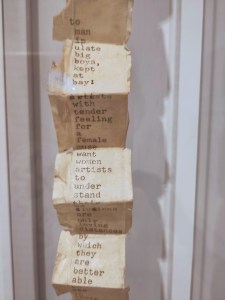 to
man
ip
ulate
big
boys,
kept
at
bay!
artists
with
tender
feeling
for
a
female
must
want
women
artists
to
under
stand
their
are
by
which
they
are
better
able